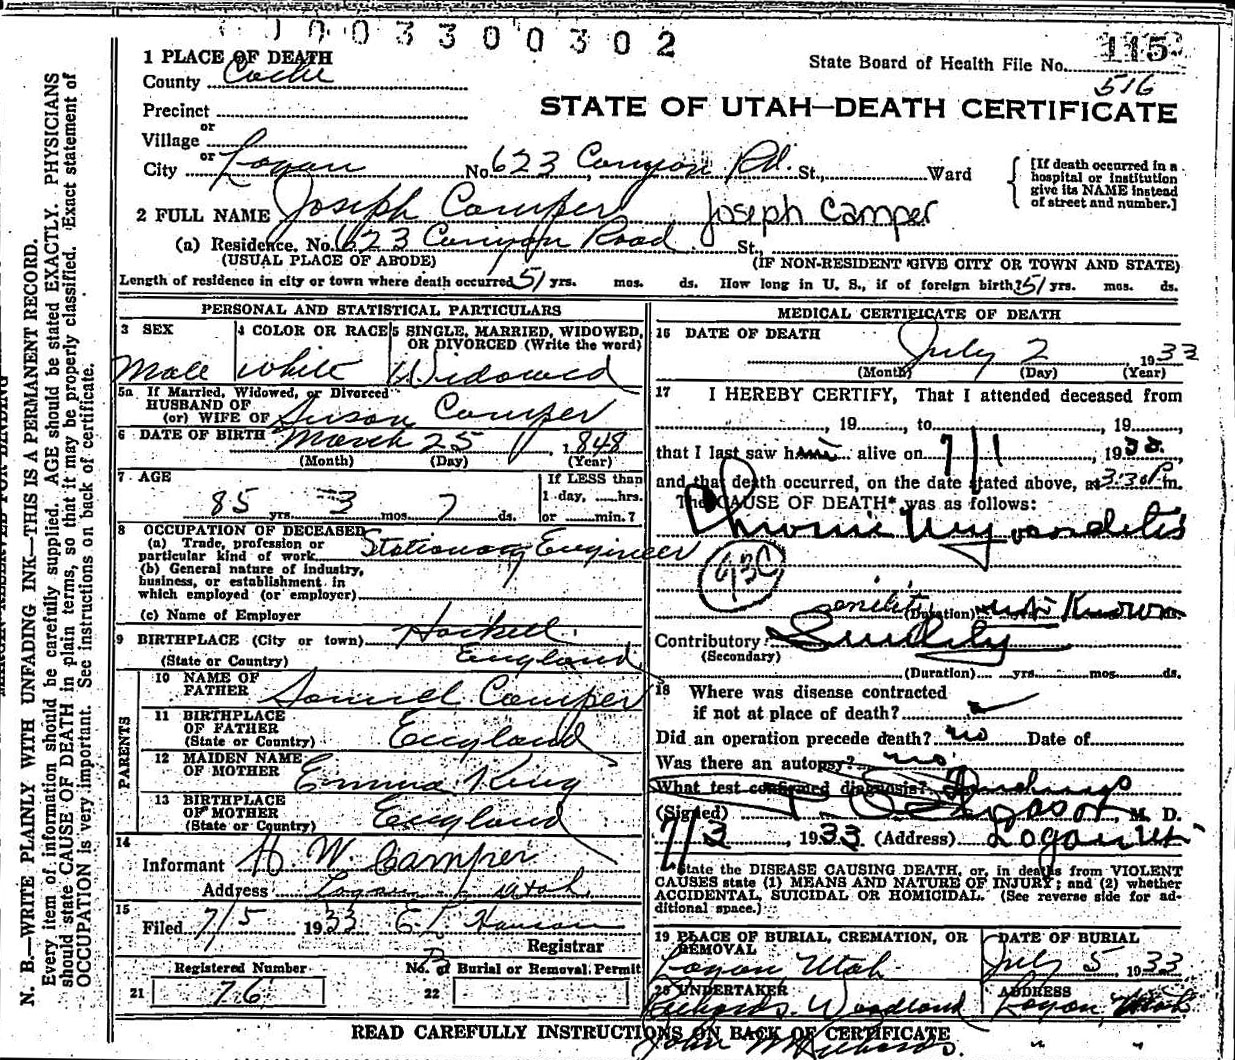 0003300302
115
State Board of Health File No.
516
STATE OF UTAH—DEATH CERTIFICATE
1 PLACE OF DEATH
County Cache
Precinct
or
Village
or
City Logan No 623 Canyon Rd. St., Ward
[If death occurred in a hospital or institution give its NAME instead of street and number.]
2 FULL NAME Joseph Camper Joseph Camper
(a) Residence, No. 623 Canyon Road St.,
(USUAL PLACE OF ABODE) (IF NON-RESIDENT GIVE CITY OR TOWN AND STATE)
Length of residence in city or town where death occurred 51 yrs. mos. ds. How long in U. S., if of foreign birth? 51 yrs. mos. ds.
PERSONAL AND STATISTICAL PARTICULARS
3 SEX
Male
4 COLOR OR RACE
White
5 SINGLE, MARRIED, WIDOWED, OR DIVORCED (Write the word)
Widowed
5a If Married, Widowed, or Divorced
HUSBAND OF
(or) WIFE OF Susan Camper
6 DATE OF BIRTH March 25, 1848
(Month) (Day) (Year)
7 AGE
85 yrs. 3 mos. 7 ds.
If LESS than
1 day, hrs.
or min.?
8 OCCUPATION OF DECEASED
(a) Trade, profession or
particular kind of work Stationary Engineer
(b) General nature of industry,
business, or establishment in
which employed (or employer)
(c) Name of Employer
9 BIRTHPLACE (City or town) Hockell
(State or Country) England
PARENTS
10 NAME OF
FATHER Samuel Camper
11 BIRTHPLACE
OF FATHER
(State or Country) England
12 MAIDEN NAME
OF MOTHER Emma King
13 BIRTHPLACE
OF MOTHER
(State or Country) England
14
Informant H W. Camper
Address Logan Utah
15
Filed 7/5 1933 E. L. Hanson
Registrar
Registered Number
21 76
No. of Burial or Removal Permit
22
MEDICAL CERTIFICATE OF DEATH
16 DATE OF DEATH
July 2 1933
(Month) (Day) (Year)
17 I HEREBY CERTIFY, That I attended deceased from
, 19 , to , 19 ,
that I last saw him alive on 7/1, 1933,
and that death occurred, on the date stated above, at 3:30 P.m.
The CAUSE OF DEATH* was as follows:
Chronic Myocarditis
senility (Duration) not Known
Contributory Senility
(Secondary)
(Duration) yrs. mos. ds.
18 Where was disease contracted
if not at place of death?
Did an operation precede death? no Date of
Was there an autopsy? no
What test confirmed diagnosis?
(Signed) M. D.
7/3, 1933 (Address) Logan Ut.
*State the DISEASE CAUSING DEATH, or, in deaths from VIOLENT
CAUSES state (1) MEANS AND NATURE OF INJURY; and (2) whether
ACCIDENTAL, SUICIDAL OR HOMICIDAL. (See reverse side for ad-
ditional space.)
19 PLACE OF BURIAL, CREMATION, OR
REMOVAL
Logan, Utah
DATE OF BURIAL
July 5 1933
20 UNDERTAKER
Richards. Woodland
ADDRESS
Logan, Utah
READ CAREFULLY INSTRUCTIONS ON BACK OF CERTIFICATE
John M Richards.
N. B.—WRITE PLAINLY WITH UNFADING INK—THIS IS A PERMANENT RECORD.
Every item of information should be carefully supplied. AGE should be stated EXACTLY. PHYSICIANS
should state CAUSE OF DEATH in plain terms, so that it may be properly classified. Exact statement of
OCCUPATION is very important. See instructions on back of certificate.